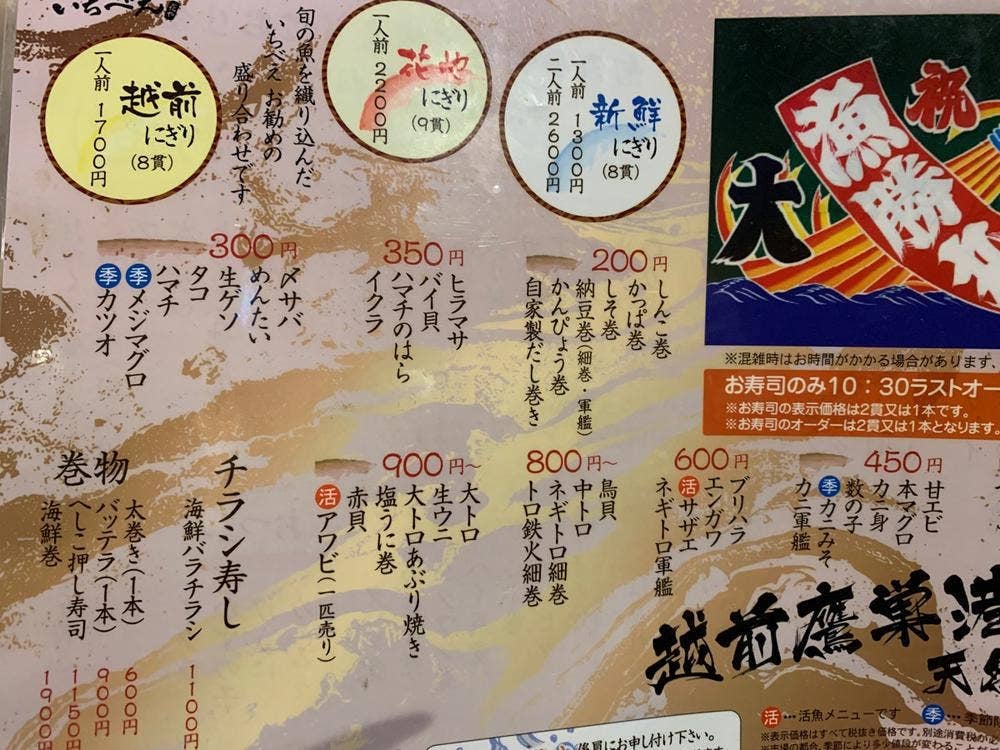 いちべえ
旬の魚を織り込んだ
いちべえ お勧めの
盛り合わせです
新鮮
にぎり
(8貫)
一人前 1300円
二人前 2600円
花
にぎり
(9貫)
一人前 2200円
越前
にぎり
(8貫)
一人前 1700円
祝
大
漁
勝
200円
しんこ巻
かっぱ巻
しそ巻
納豆巻(細巻・軍艦)
かんぴょう巻
自家製だし巻き
350円
ヒラマサ
バイ貝
ハマチのはら
イクラ
300円
〆サバ
めんたい
生ゲソ
タコ
ハマチ
季メジマグロ
季カツオ
※混雑時はお時間がかかる場合があります、
お寿司のみ10:30ラストオー
※お寿司の表示価格は2貫又は1本です。
※お寿司のオーダーは2貫又は1本となります。
450円
甘エビ
本マグロ
カニ一身
数の子
季カニみそ
カニ軍艦
600円
ブリハラ
エンガワ
活サザエ
ネギトロ軍艦
800円〜
鳥貝
中トロ
ネギトロ細巻
トロ鉄火細巻
900円〜
大トロ
生ウニ
大トロあぶり焼き
塩うに巻
赤貝
活アワビ(一匹売り)
チラシ寿し
海鮮バラチラシ 1100円
巻物
太巻き(1本) 600円
バッテラ(1本) 900円
へしこ押し寿司 1150円
海鮮巻 1900円
越前鷹巣港
天
活…活魚メニューです
季…季節限
※表示価格はすべて税抜き価格です。別途消費税が
係員にお申し付け下さい。